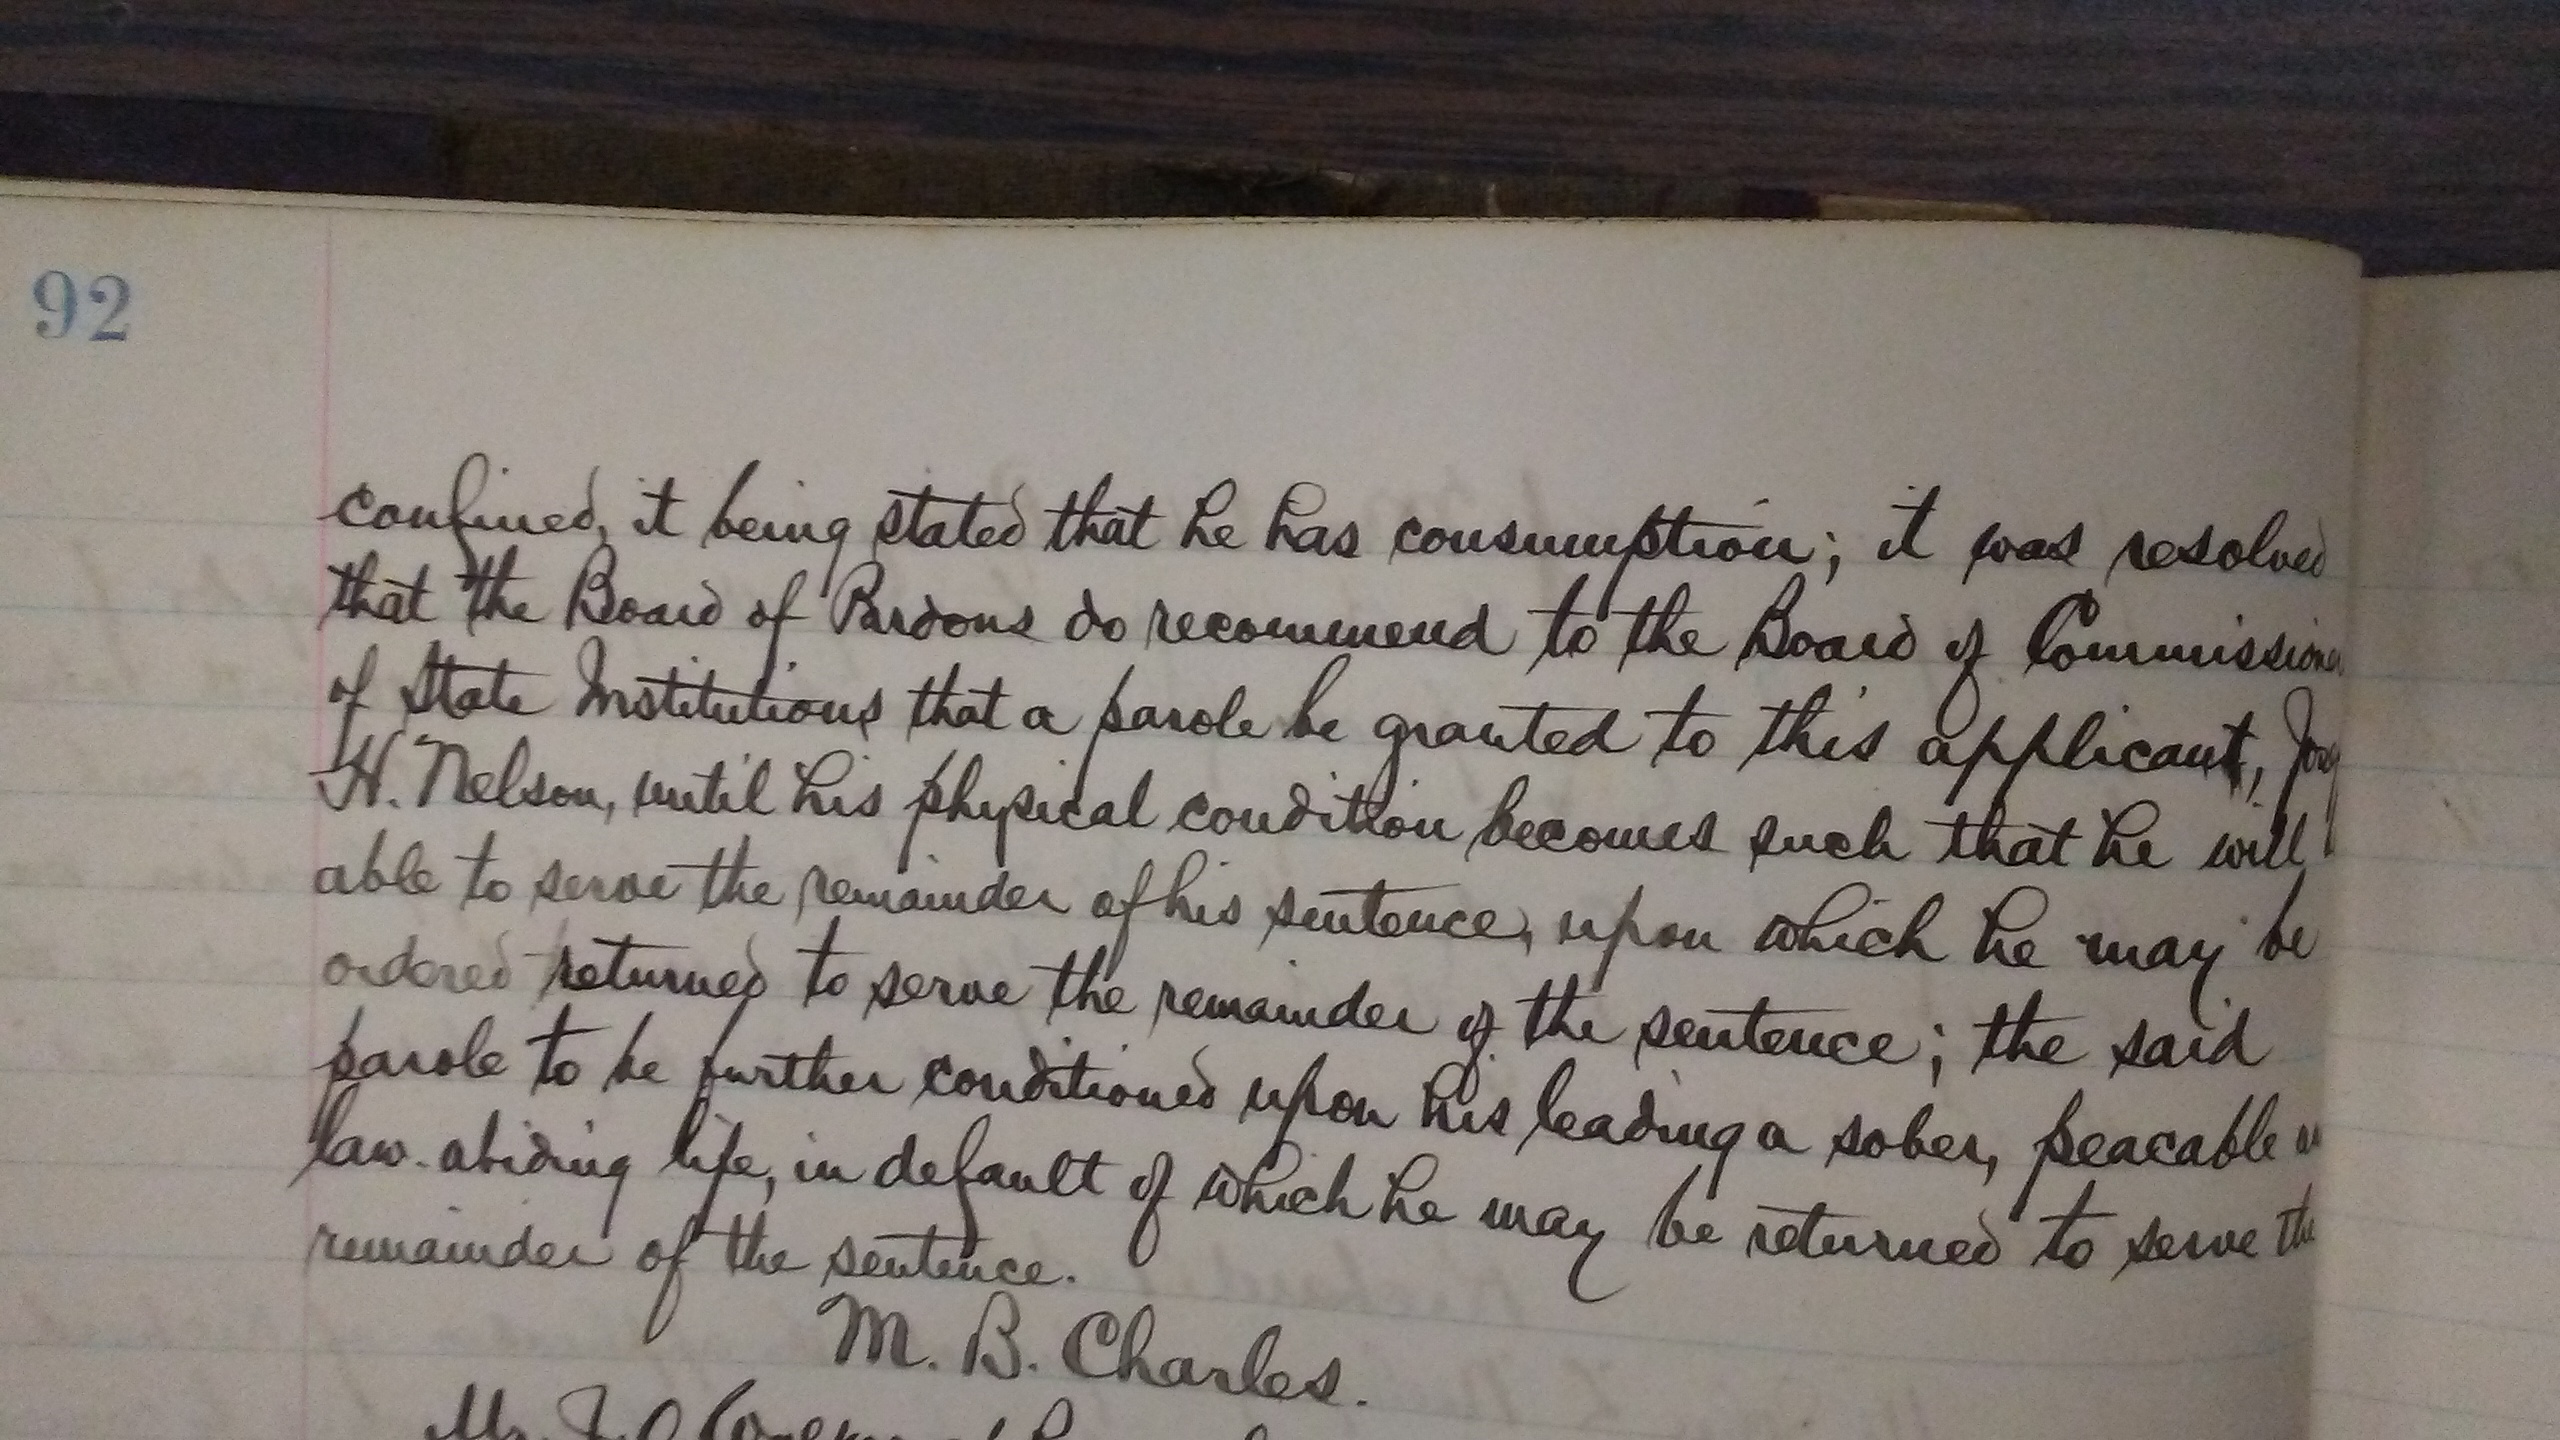 92
confined, it being stated that he has consumption; it was resolved
that the Board of Pardons do recommend to the Board of Commissioner
of State Institutions that a parole be granted to this applicant,
H. Nelson, until his physical condition becomes such that he will
able to serve the remainder of his sentence, upon which he may be
ordered returned to serve the remainder of the sentence; the said
parole to be further conditioned upon his leading a sober, peacable
law-abiding life, in default of which he may be returned to serve the
remainder of the sentence.
M. B. Charles.